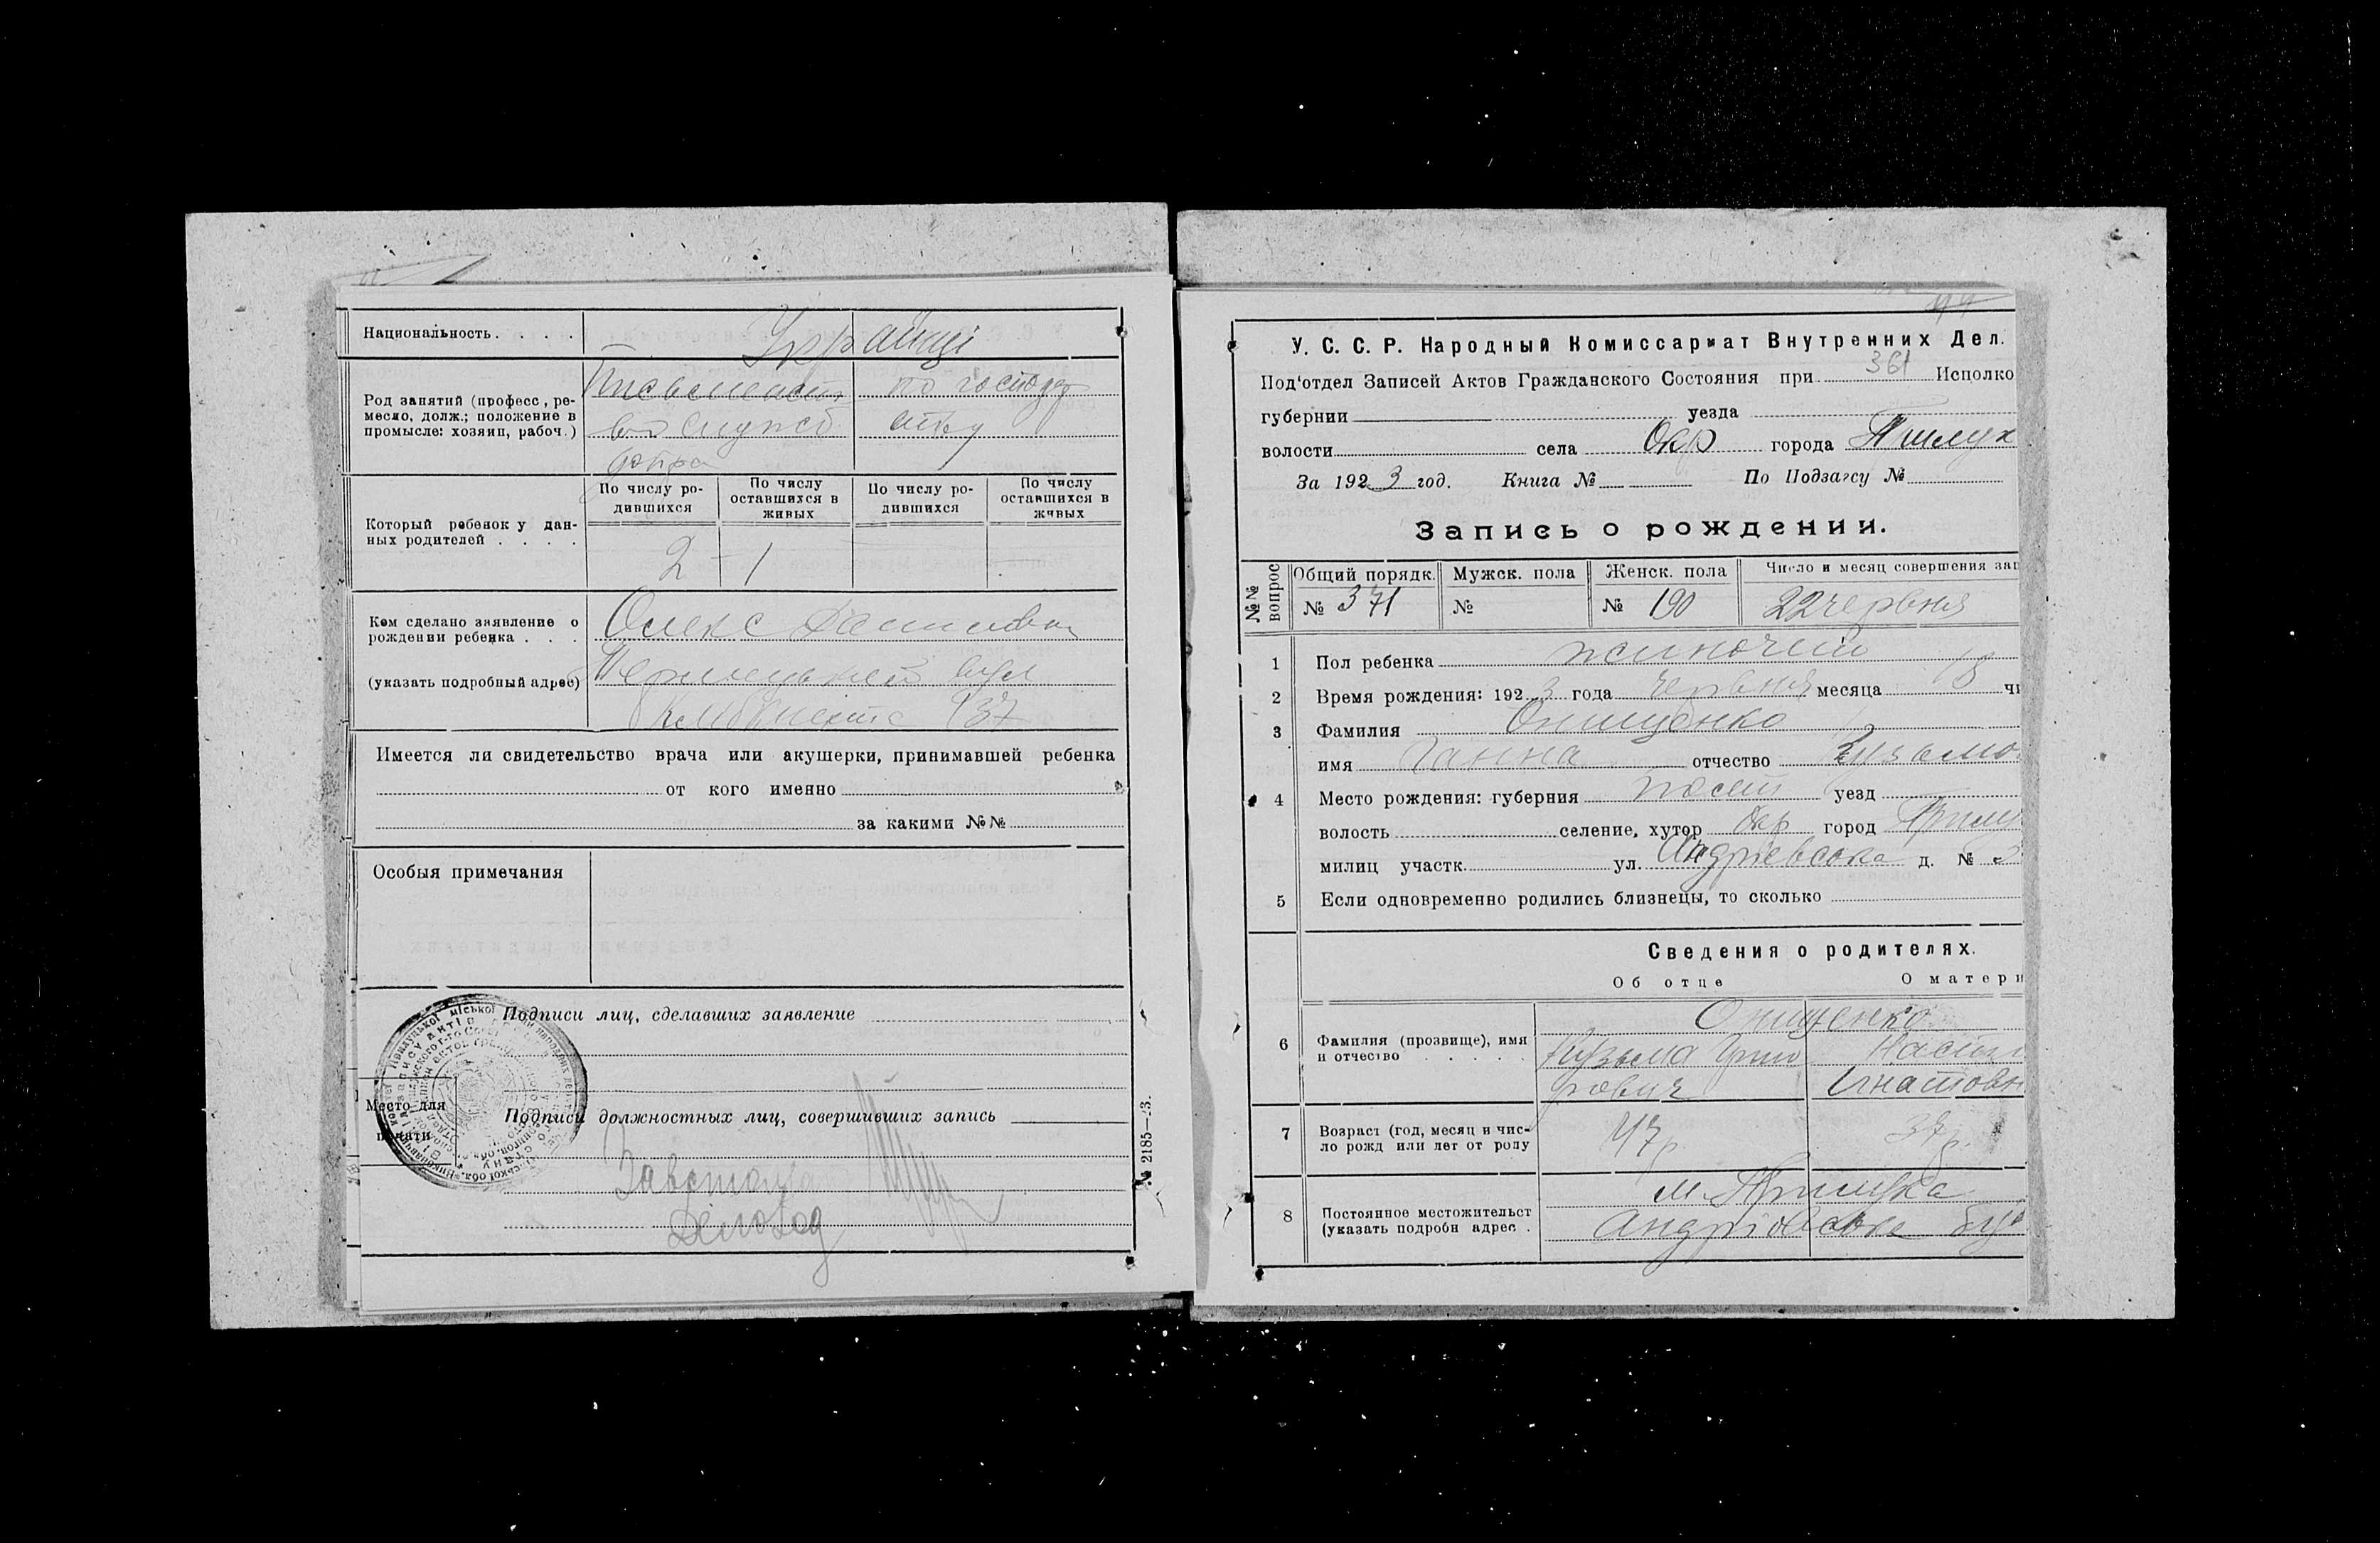 Национальность
Українці
Род занятий (професс, ре-
месло, долж.; положение в
промысле: хозяин, рабоч.)
по господар
ству
Который ребенок у дан-
ных родителей
По числу ро-
дившихся
По числу
оставшихся в
живых
По числу ро-
дившихся
По числу
оставшихся в
живых
2 - 1
Кем сделано заявление о
рождении ребенка
Олекс
(указать подробный адрес)
вул
37
Имеется ли свидетельство врача или акушерки, принимавшей ребенка
от кого именно
за какими №№
Особыя примечания
Подписи лиц, сделавших заявление
Место для
печати
Подписи должностных лиц, совершивших запись
Завстолу
Діловод
№ 2185—23.
У. С. С. Р. Народный Комиссариат Внутренних Дел.
Под'отдел Записей Актов Гражданского Состояния при 361 Исполко
губернии уезда
волости села Окр города Прилук
За 1923 год. Книга № По Подзагсу №
Запись о рождении.
№№ вопрос
Общий порядк. Мужск. пола Женск. пола Число и месяц совершения зап
№ 371 № № 190 22 червня
1 Пол ребенка жиночий
2 Время рождения: 1923 года червня месяца 18 чи
3 Фамилия Онищенко
имя Ганна отчество Кузьмо
4 Место рождения: губерния Полт уезд
волость селение, хутор Окр город Прилу
милиц участк. ул. Андріевська д. №
5 Если одновременно родились близнецы, то сколько
Сведения о родителях.
Об отце О матери
6 Фамилия (прозвище), имя
и отчество
Онищенко
Кузьма Григо
рович
Наста
Игнатовн
7 Возраст (год, месяц и чис-
ло рожд или лет от роду
47 р. 37 р.
8 Постоянное местожительст
(указать подробн адрес
м. Прилука
Андріівська вул